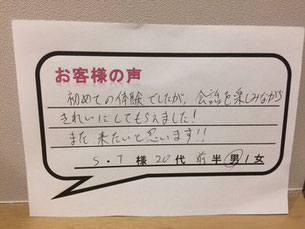 お客様の声
初めての体験でしたが、会話を楽しみながら
きれいにしてもらえました!
また来たいと思います!!
S・T 様 20代 前半 男/女